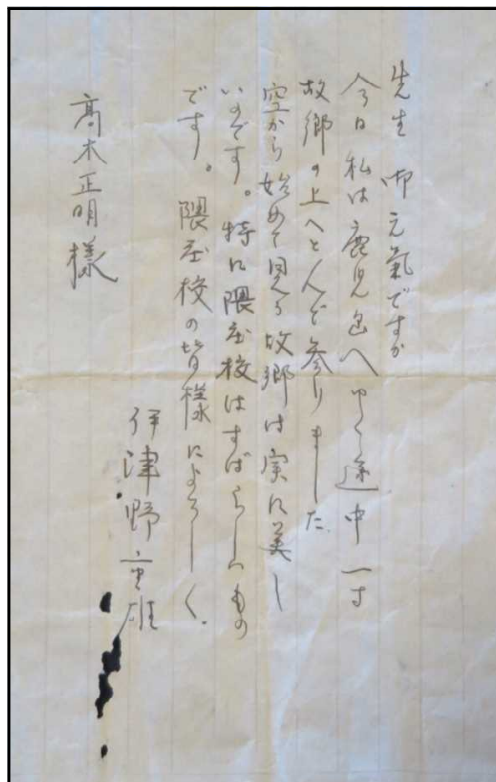 先生 御元氣ですか
今日 私は鹿児島へゆく途中 一寸
故郷の上へとんで参りました
空から始めて見る故郷は実に美し
いのです。特に隈庄校はすばらしいもの
です。 隈庄校の皆様によろしく.
伊津野重雄
高木正明様